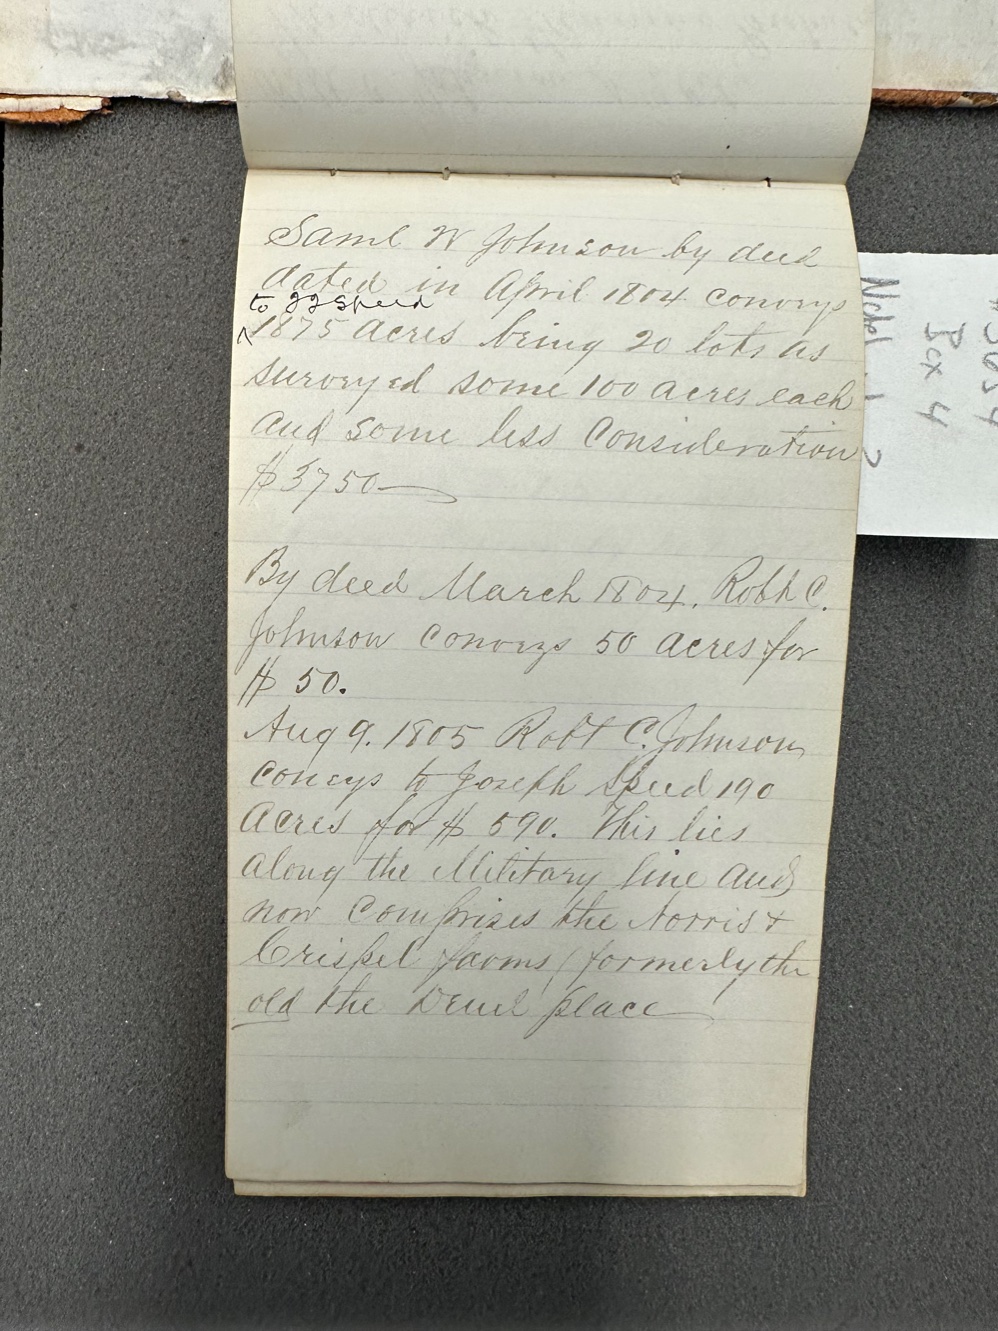 Saml W Johnson by deed
dated in April 1804 convoys
to JJ Speed
1875 acres being 20 lots as
surveyed some 100 acres each
and some less Consideration
$3750
By deed March 1804. Robt C.
Johnson convoys 50 acres for
$ 50.
Aug 9. 1805 Robt C. Johnson
conveys to Joseph Speed 190
acres for $ 590. This lies
along the Military line and
now comprises the Norris &
Crispel farms (formerly the
old the Deuel place
Box 4